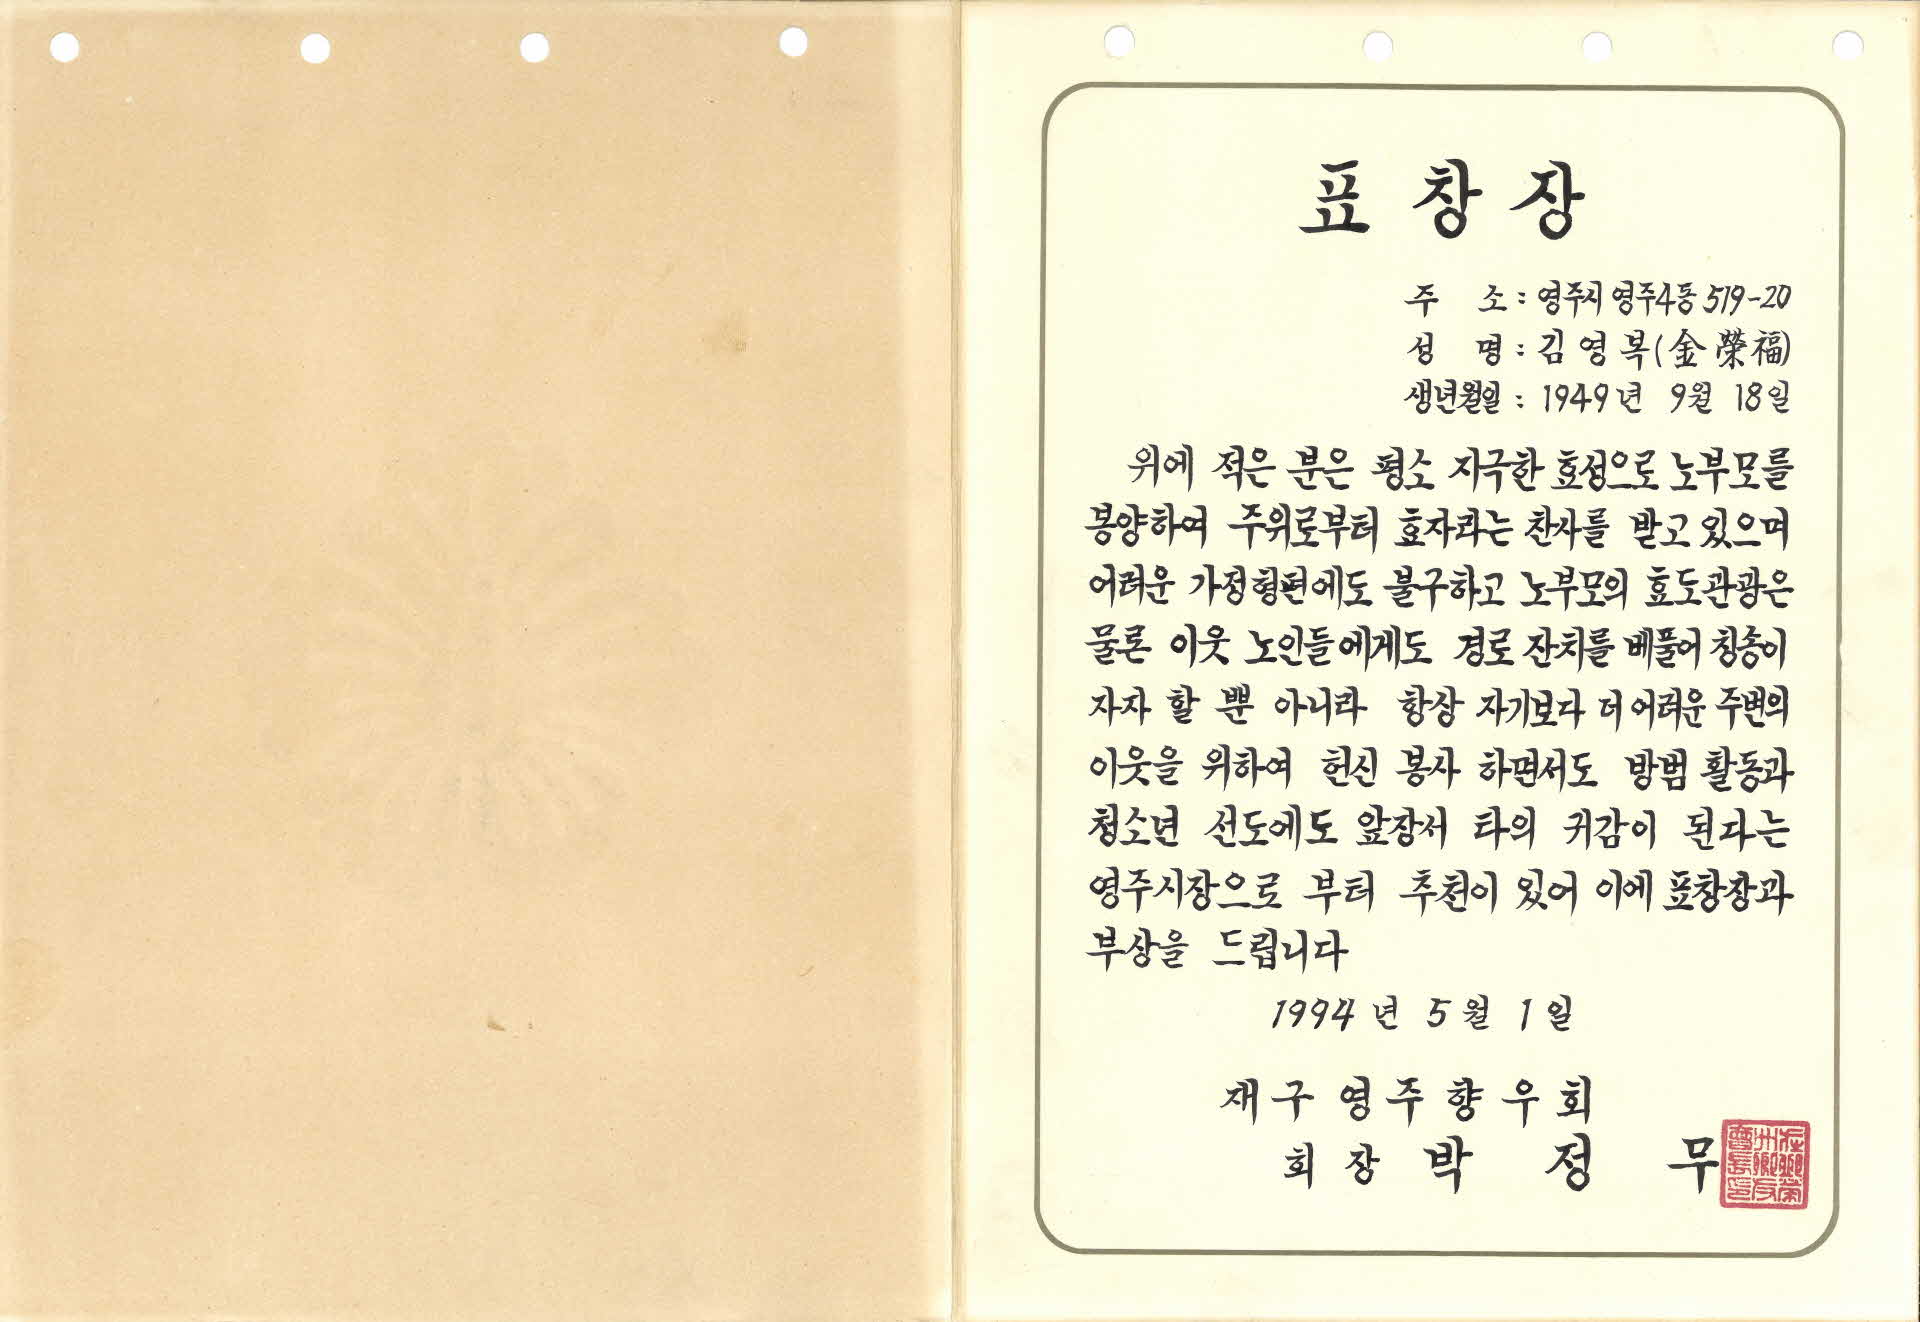 표창장
주 소 : 영주시 영주4동 519-20
성 명 : 김영복(金榮福)
생년월일 : 1949년 9월 18일
위에 적은 분은 평소 지극한 효성으로 노부모를
봉양하여 주위로부터 효자라는 찬사를 받고 있으며
어려운 가정형편에도 불구하고 노부모의 효도관광은
물론 이웃 노인들에게도 경로 잔치를 베풀어 칭송이
자자 할 뿐 아니라 항상 자기보다 더 어려운 주변의
이웃을 위하여 헌신 봉사 하면서도 방범 활동과
청소년 선도에도 앞장서 타의 귀감이 된다는
영주시장으로 부터 추천이 있어 이에 표창장과
부상을 드립니다
1994년 5월 1일
재구영주향우회
회장 박정무